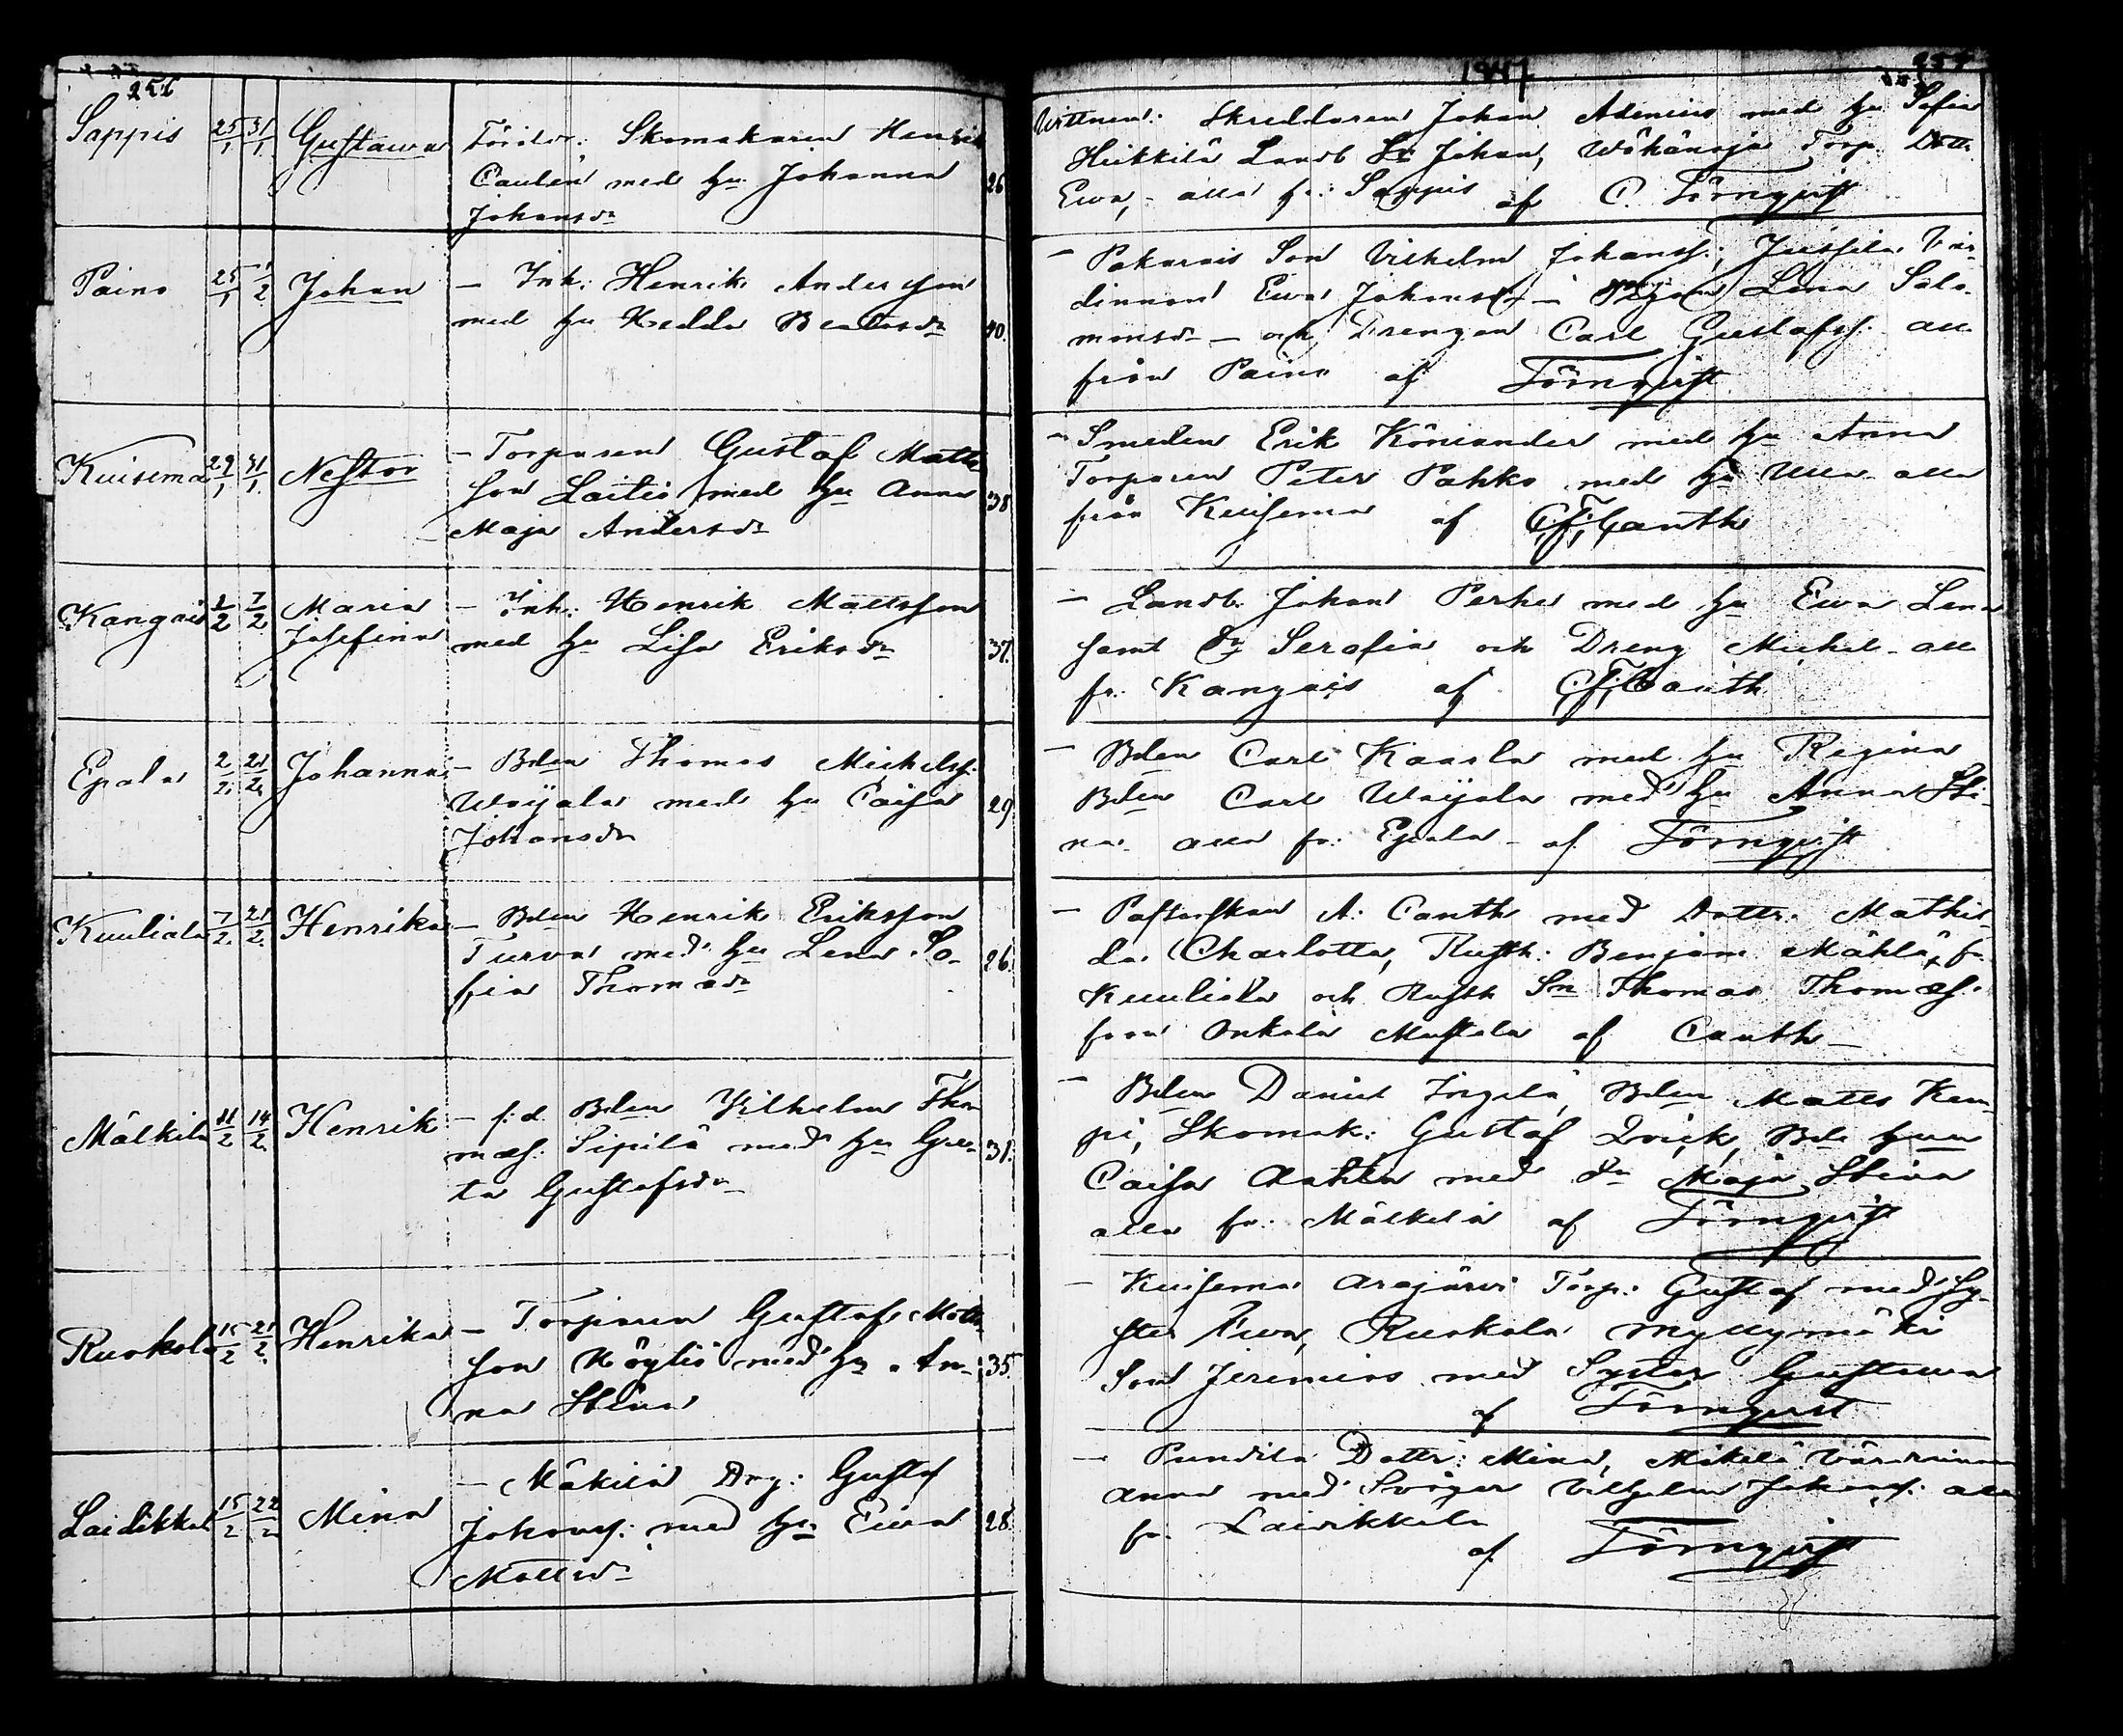 256
Sappis 25/1 31/1 Gustawa Föräldr: Skomakaren Henrik
Caulen med hu Johanna 26
Johansdr
Paino 25/1 1/2 Johan - Inh: Henrik Andersson
med hu Hedda 40.
Kuisema 29/1 31/1 Nestor - Torparen Gustaf Matts
son Laitio med hu Anna 38
Maja Andersdr
Kangais 2/2 7/2 Maria - Inh: Henrik Mattsson
Josefina med hu Lisa Eriksdr 37.
Epala 2/2. 21/2. Johanna - Bden Thomas Michelss:
Woijala med hu Caisa 29
Johansdr
Kuuliala 7/2. 21/2. Henrika - Bden Henrik Eriksson
Turva med hu Lena So- 26.
fia Thomasdr
Mälkilä 11/2 14/2. Henrik - f:d. Bden Vilhelm Tho
mæs: Sipilä med hu Gre- 31.
ta Gustafsdr
Ruokola 15/2 21/2. Henrika - Torparen Gustaf Matts
son Köyliö med hu An- 35.
na Stina
Laidikkal 15/2 22/2 Mina - Mäkilä Drg: Gustaf
Johanss: med hu Ewa 28.
Mattsdr
1847 257
Wittnen: Skreddaren Johan Adenius med hu Sofia
Heikkilä Landb Sn Johan, Wähäoja Torp. Dottr
Ewa, - alla fr: Sappis af C. Törnqvist
- Pakarais Son Vilhelm Johanss:, Jussila Vär-
dinnan Ewa Johansdr - Pigan Lena Salo-
monsdr - och Drengen Carl Gustafss: all
från Paino af Törnqvist
- Smeden Erik Köniander med hu Anna
Torparen Peter Pahko med hu Ulla alla
från Kuisema af C:F: Canth
- Landb. Johan Perhe med hu Ewa Lena
samt Dr Serafia och Dreng Michel - all
fr: Kangais af C:F: Canth
- Bden Carl Kaarla med hu Regina
Bden Carl Woijala med hu Anna Sti-
na. alla fr: Epala - af Törnqvist
- Pastorskan A: Canth med Dottr: Mathil-
da Charlotta, Rusth: Benjam: Mähkä, fr
Kuuliala och Rusth Sn Thomas Thomæs:
från Onkala Mustala af Canth -
- Bden Daniel Ingilä, Bden Matts Kem-
pi, Skomak: Gustaf Qvick, Bde hun
Caisa Aakka med dr Maja Stina
alla fr: Mälkilä af Törnqvist
- Kuisema Arajärvi Torp: Gustaf med Sy-
ster Ewa, Ruokola Myllymäki
Son Jeremias med Syster Gustawa
af Törnqvist
- Pundila Dottr: Mina, Mäkilä Värdinnan
Anna med Svåger Vilhelm Johanss: all
fr. Laidikkala
af Törnqvist